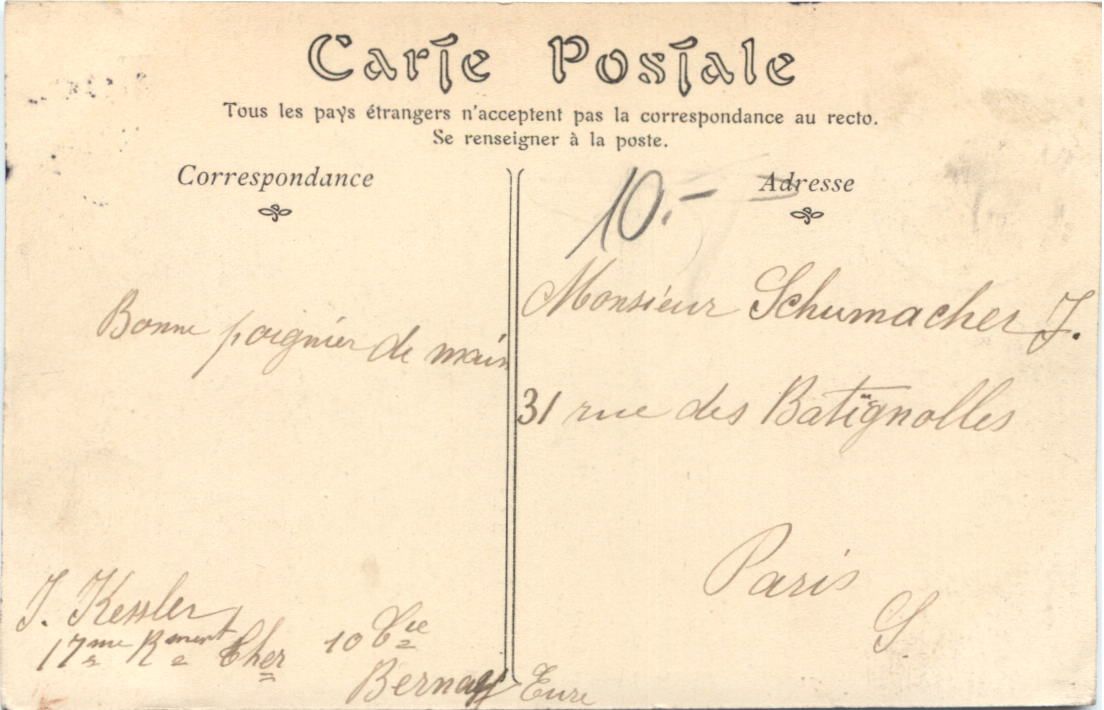 Carte Postale
Tous les pays étrangers n'acceptent pas la correspondance au recto.
Se renseigner à la poste.
Correspondance
Adresse
10.-
Bonne poignier de main
Monsieur Schumacher J.
31 rue des Batignolles
Paris
J. Kessler
17me Rment Cher 10 Cie
Bernay Eure